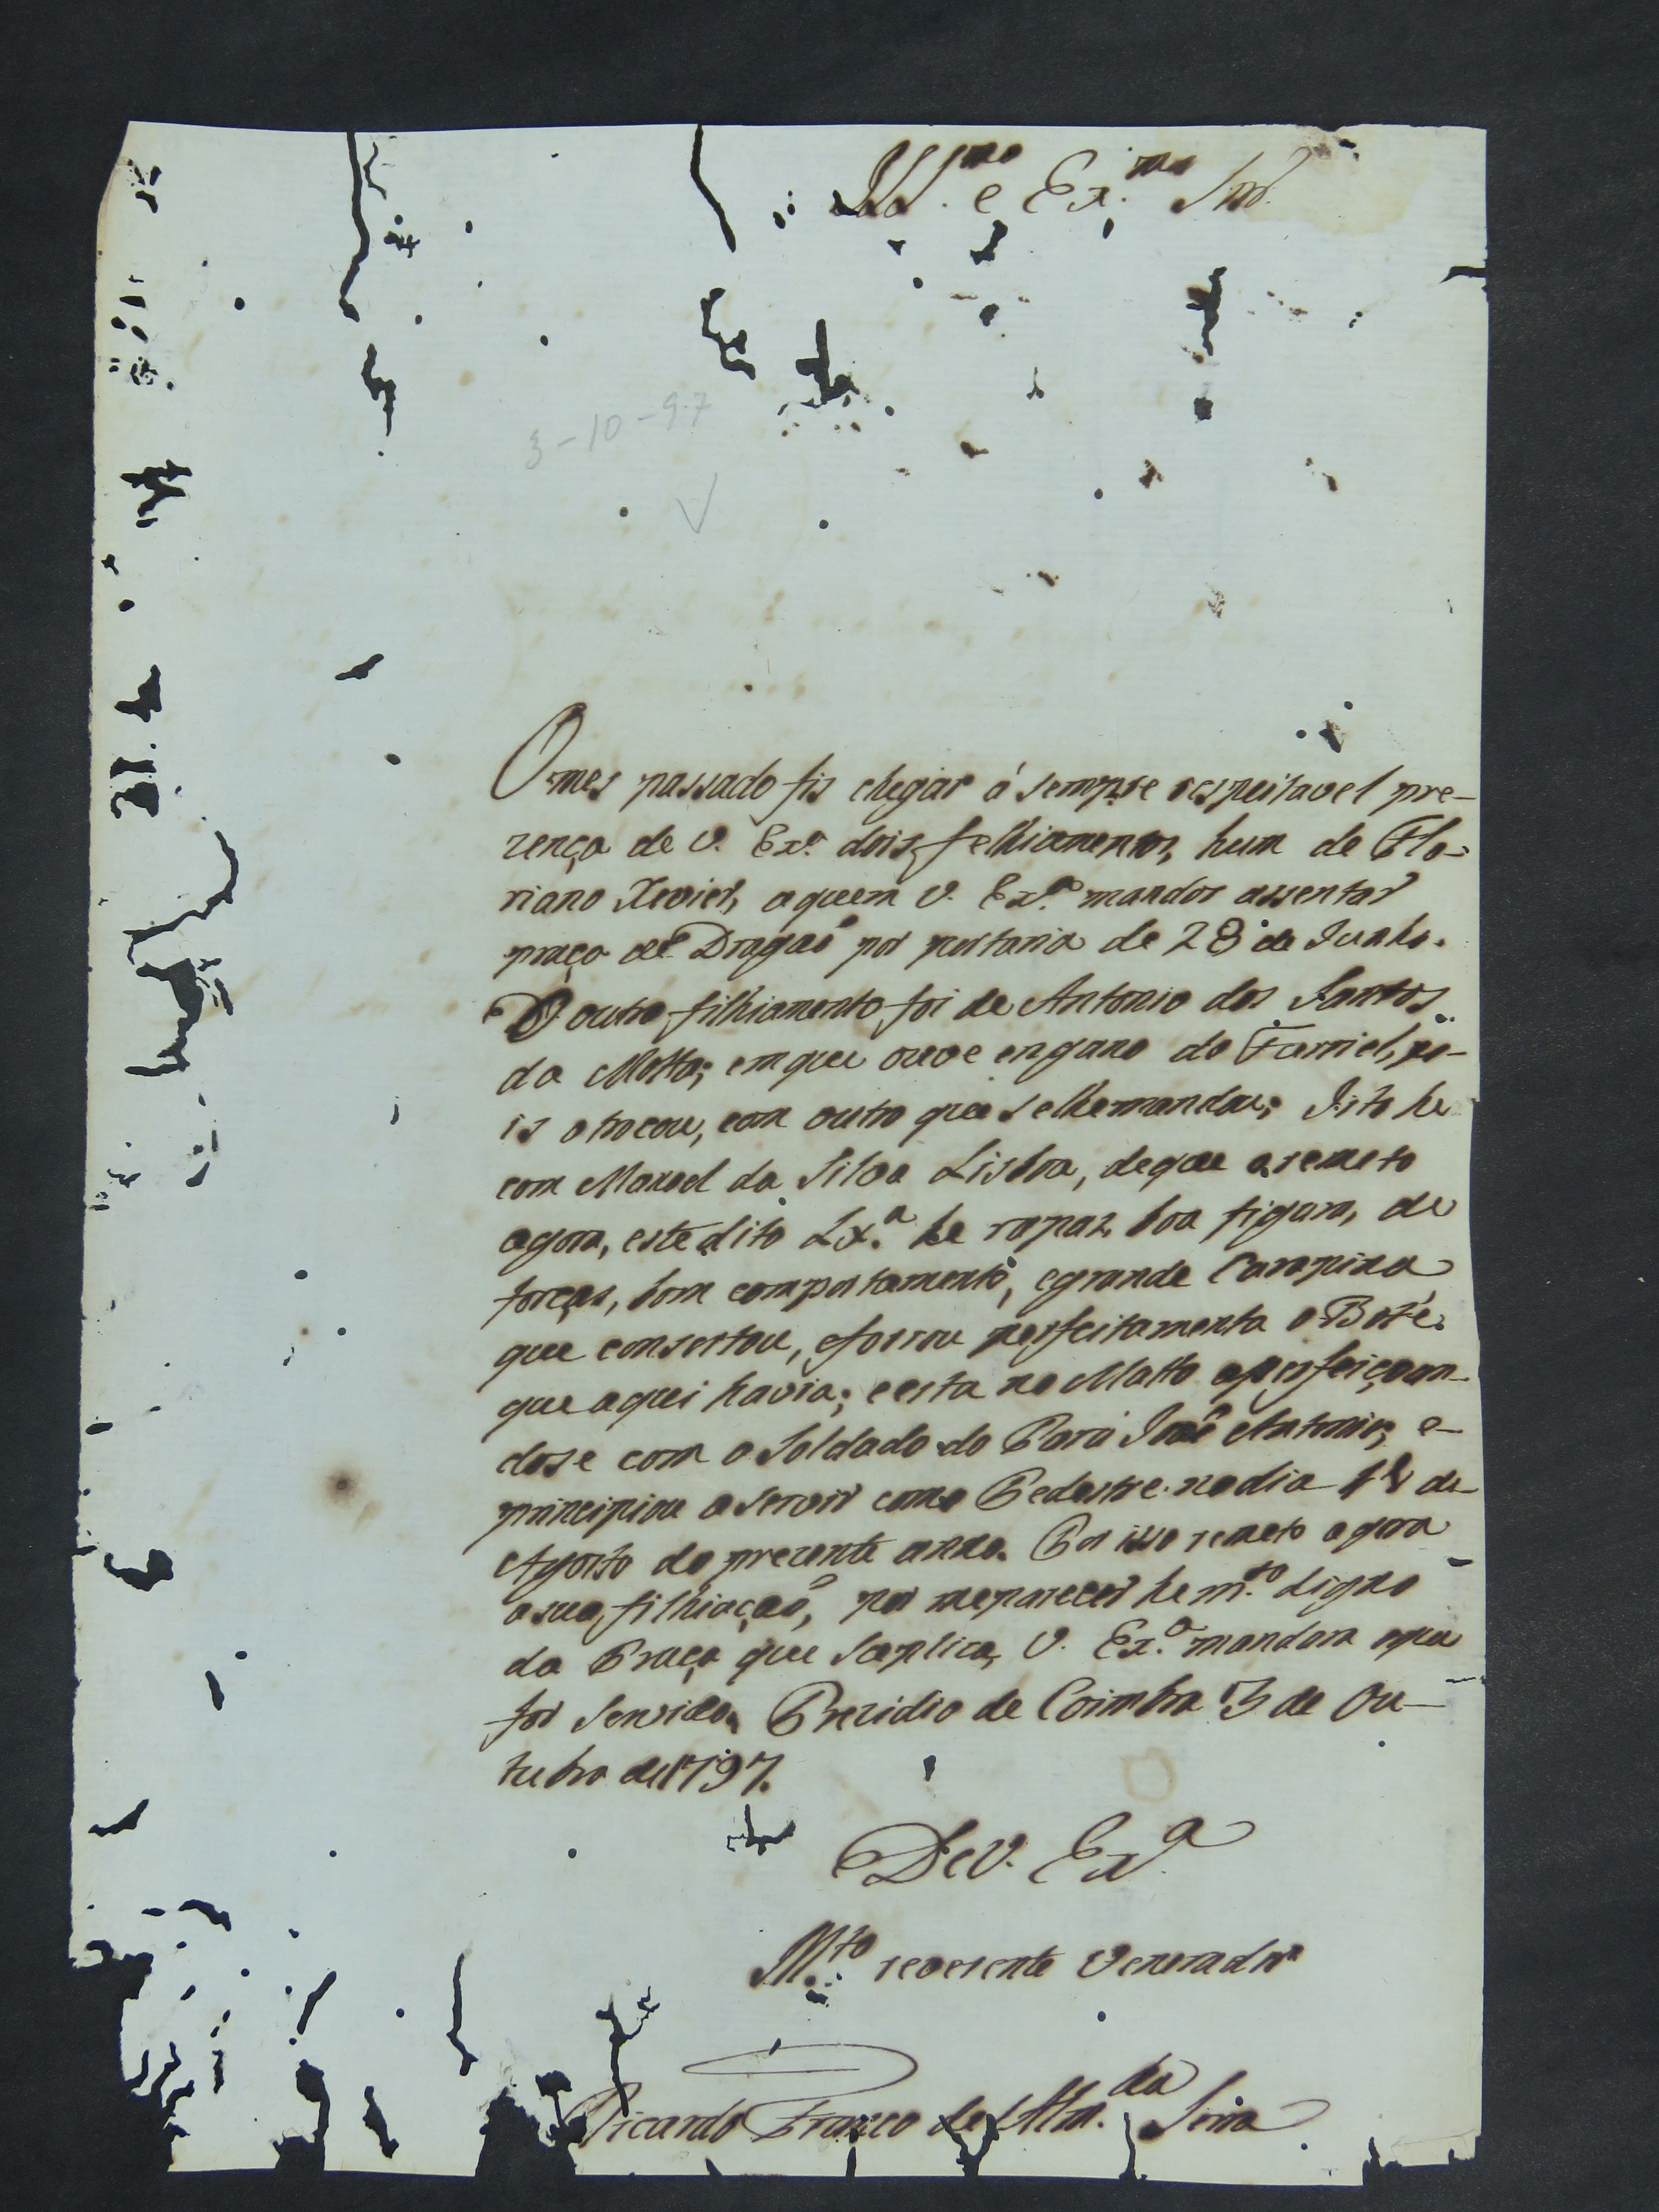 Ill.mo e Ex.mo Snr.
3-10-97
O mes passado fis chegar á sempre respeitavel pre-
zença de V. Ex.a dois felhiamentos, hum de Flo-
riano Xevier, aquem V. Ex.a mandor assentar
praça de Dragaõ por portaria de 28 de Junho.
O outro filhiamento foi de Antonio dos Santos
da Motta; emque ouve engano do Furriel, po-
is otrocou, com outro que selhemandou; Isto he
com Manoel da Silva Lisboa, deque a remeto
agora, este dito Lx.a he rapaz, boa figura, de
forças, bom comportamento, egrande Carapina
que consertou, eforrou perfeitamente o Bote.
que aqui havia; eesta no Matto aperfeiçoan-
dose com o Soldado do Pará José Antonio; e-
principiou aservir como Pedestre nodia de
Agosto do prezente anno. Por isso remeto agora
asua filhiaçaõ, por meparecer he m.to digno
da Praça que Suplica, V. Ex.a mandara oque
for Servido. Prezidio de Coimbra 3 de Ou-
tubro de 1797.
De V. Ex.a
M.to reverente Venerador
Ricardo Franco de Alm.da Serra